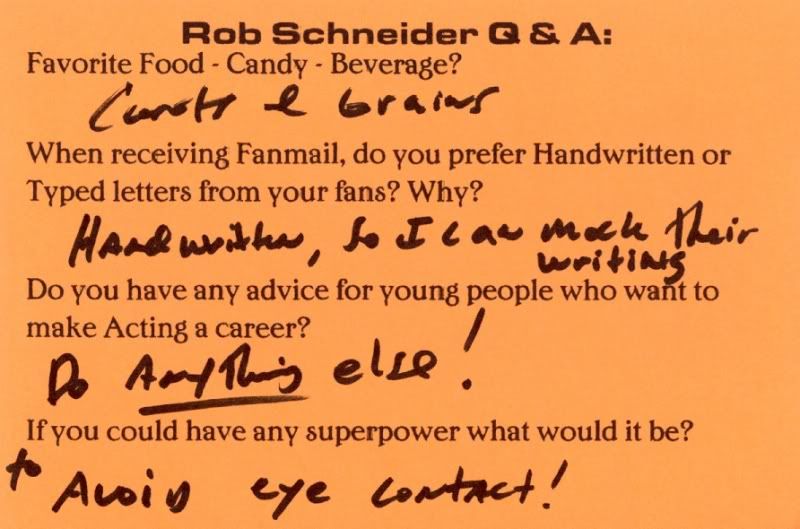 Rob Schneider Q & A:
Favorite Food - Candy - Beverage?
Carrots & brains
When receiving Fanmail, do you prefer Handwritten or
Typed letters from your fans? Why?
Handwritten, so I can mock their
writing
Do you have any advice for young people who want to
make Acting a career?
Do Anything else!
If you could have any superpower what would it be?
to Avoid eye contact!